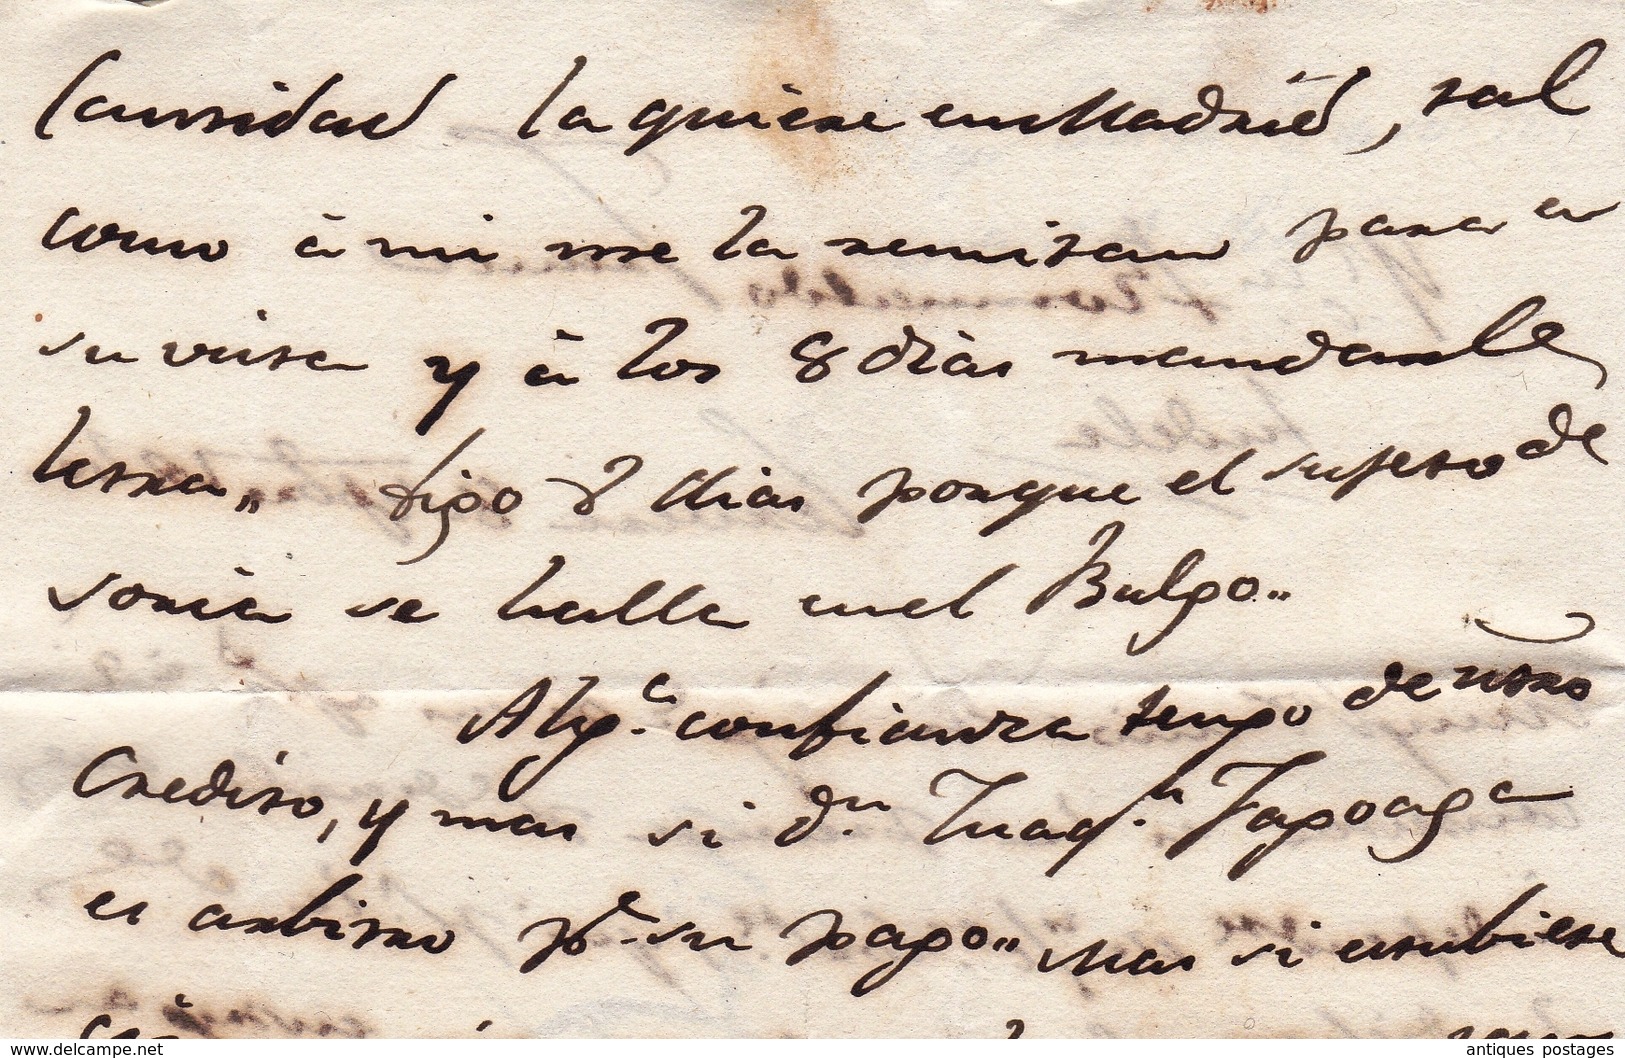 Cantidad la quiere en Madrid, tal
como à mi me la remitan para a
su vista y à los 8 dias mandarle
letra,, digo 8 dias porque el sujeto de
Soria se halla en el Bulgo..
Alg.ª confianza tengo de ntro
Credito, y mas si d.n Juaq.n Zapoaga
es arbitro p.ª su pago.. Mas si estubiese
www.delcampe.net
antiques postages